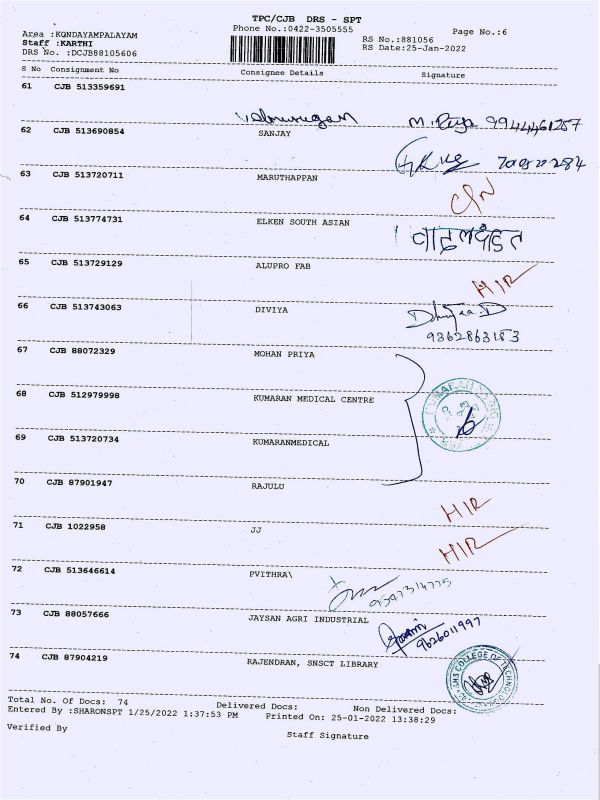 TPC/CJB DRS - SPT
Phone No.:0422-3505555
Area :KONDAYAMPALAYAM
Staff :KARTHI
DRS No. :DCJB88105606
RS No.:881056
RS Date:25-Jan-2022
Page No.:6
S No Consignment No Consignee Details Signature
61 CJB 513359691
M. Priya 9944461257
62 CJB 513690854 SANJAY
63 CJB 513720711 MARUTHAPPAN
64 CJB 513774731 ELKEN SOUTH ASIAN
65 CJB 513729129 ALUPRO FAB
H/R
66 CJB 513743063 DIVIYA
9362863183
67 CJB 88072329 MOHAN PRIYA
68 CJB 512979998 KUMARAN MEDICAL CENTRE
69 CJB 513720734 KUMARANMEDICAL
70 CJB 87901947 RAJULU
H/R
71 CJB 1022958 JJ
H/R
72 CJB 513646614 PVITHRA\
73 CJB 88057666 JAYSAN AGRI INDUSTRIAL
9626011997
74 CJB 87904219 RAJENDRAN, SNSCT LIBRARY
SNS COLLEGE OF TECHNOLOGY
Total No. Of Docs: 74 Delivered Docs: Non Delivered Docs:
Entered By :SHARONSPT 1/25/2022 1:37:53 PM Printed On: 25-01-2022 13:38:29
Verified By Staff Signature